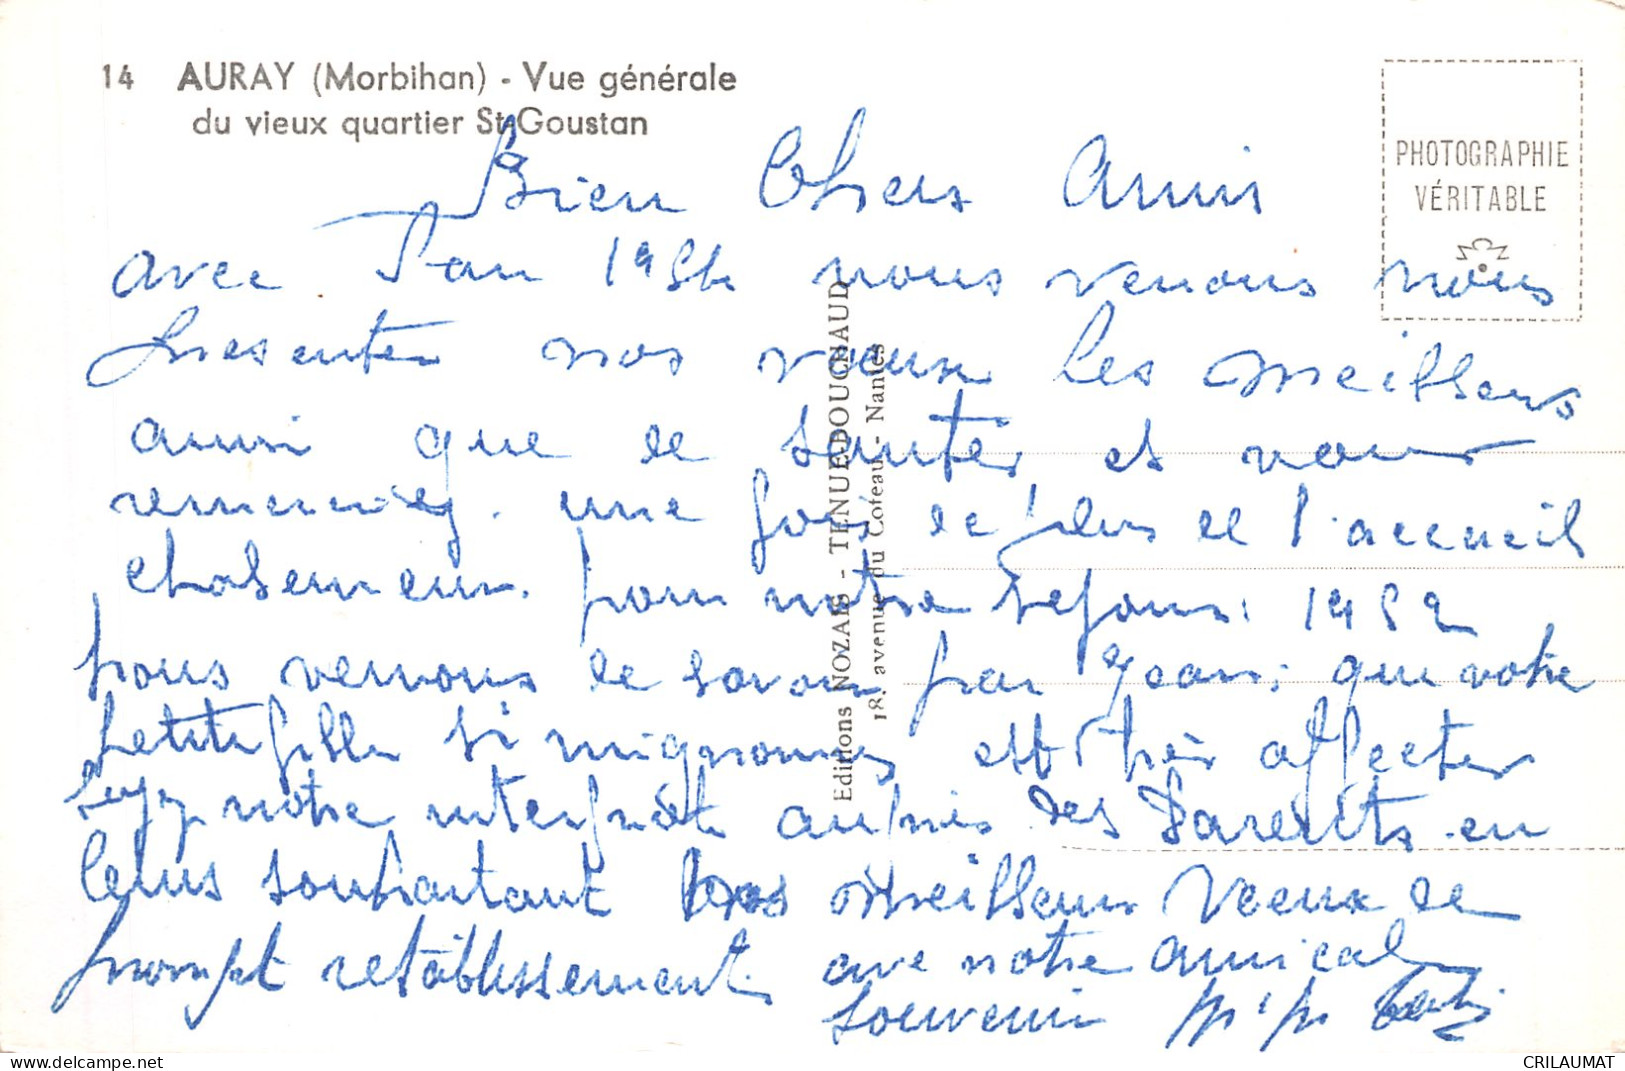 14 AURAY (Morbihan) - Vue générale
du vieux quartier St-Goustan
PHOTOGRAPHIE
VÉRITABLE
Editions NOZAIS - TENUEDOUCHAUD
18, avenue du Coteau - Nantes
Bien Chers Amis
avec l'an 1954 nous venons nous
presenter nos vœux les meilleurs
ainsi que de santés et vous
une fois de plus de l'accueil
pour notre sejour. 1952
nous venons de savoir par Jean, que votre
petite fille si mignonne est très affecter
notre auprès des Parents en
leurs souhaitant nos meilleurs Veœux de
prompt retablissement. ave notre amical
souvenir
CRILAUMAT